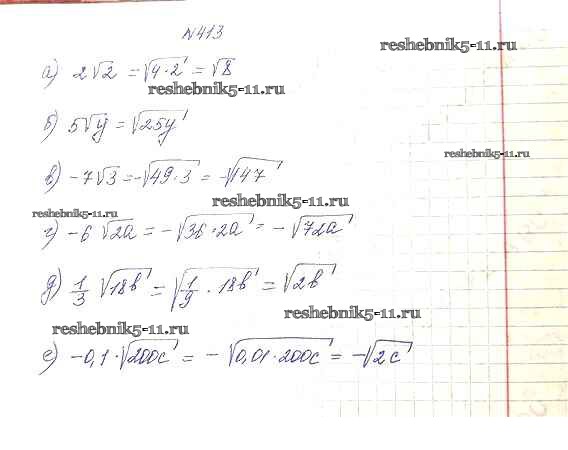 №413
reshebnik5-11.ru
а) 2√2 = √(4·2) = √8
reshebnik5-11.ru
б) 5√y = √(25y)
reshebnik5-11.ru
в) -7√3 = -√(49·3) = -√147
reshebnik5-11.ru
reshebnik5-11.ru
г) -6√(2a) = -√(36·2a) = -√(72a)
д) 1/3 √(18b) = √(1/9 · 18b) = √(2b)
reshebnik5-11.ru
reshebnik5-11.ru
е) -0,1·√(200c) = -√(0,01·200c) = -√(2c)